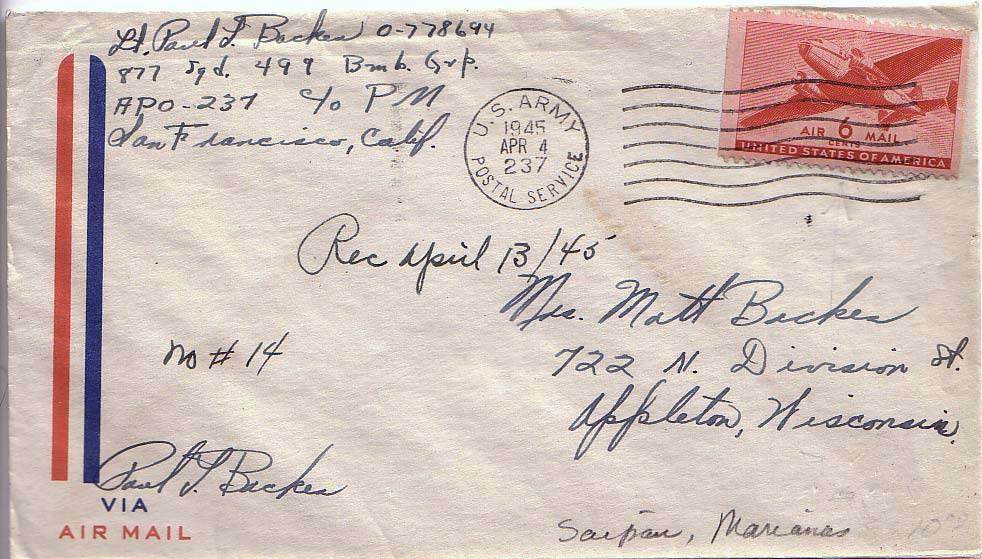 Lt. Paul L. Backes O-778694
877 Sqd. 499 Bmb. Grp.
APO-237 c/o P M
San Francisco, Calif.
U.S. ARMY
1945
APR 4
237
POSTAL SERVICE
AIR 6 MAIL
CENTS
UNITED STATES OF AMERICA
Rec April 13/45
Mrs. Matt Backes
722 N. Division St.
Appleton, Wisconsin.
No # 14
Paul L. Backes
VIA
AIR MAIL
Saipan, Marianas